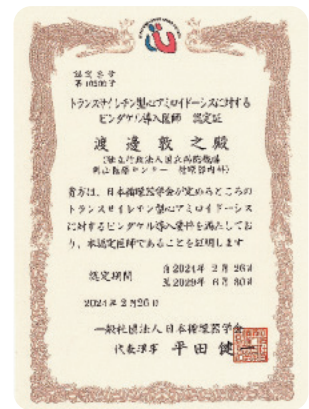 認定番号
トランスサイレチン型心アミロイドーシスに対する
ビンダケル導入医師 認定証
渡邊敦之殿
(独立行政法人国立病院機構
岡山医療センター 循環器内科)
貴方は、日本循環器学会が定めるところの
トランスサイレチン型心アミロイドーシス
に対するビンダケル導入要件を満たしてお
り、本認定医師であることを証明します
認定期間
自2024年 2月26日
至2029年 6月30日
2024年2月26日
一般社団法人日本循環器学会
代表理事 平田健一